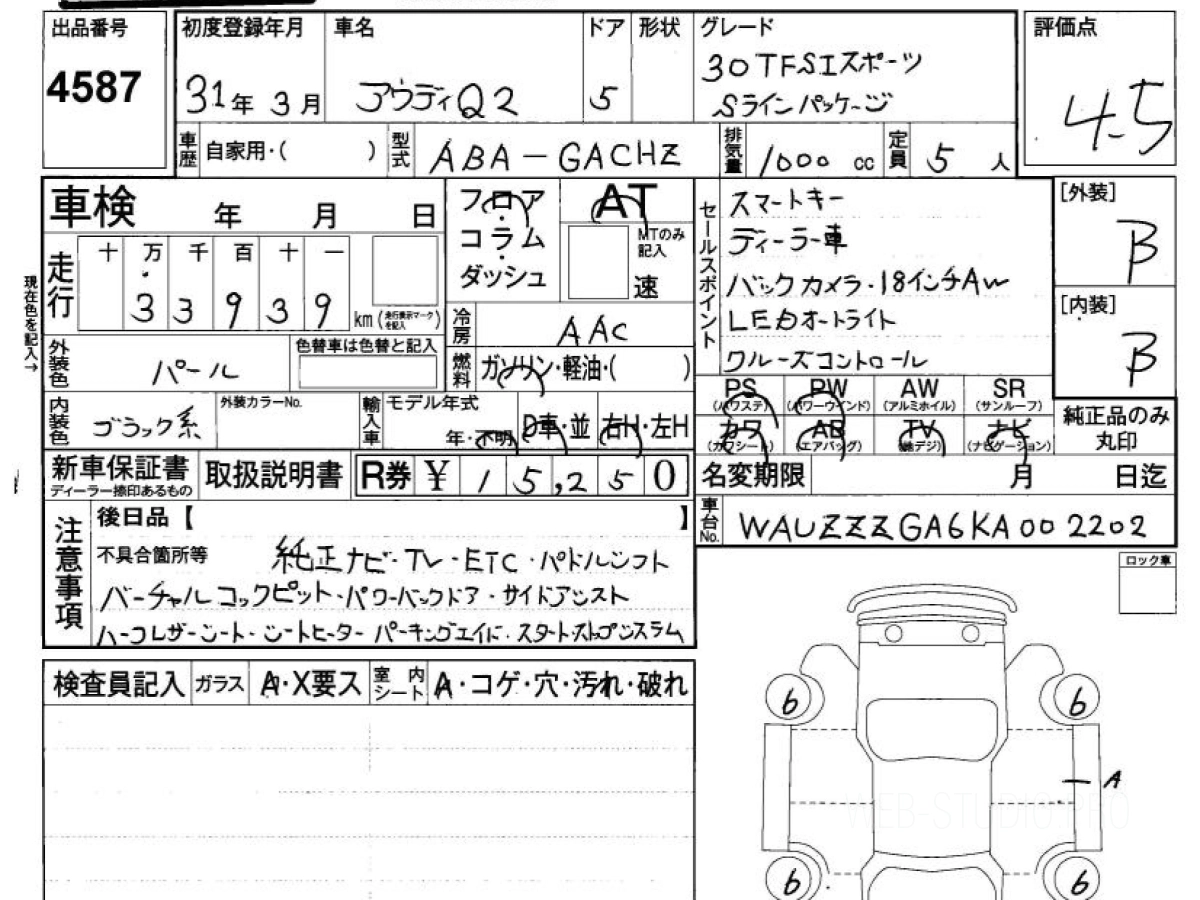 出品番号 初度登録年月 車名 ドア 形状 グレード 評価点
4587 31年 3月 アウディQ2 5 30TFSIスポーツ
Sラインパッケージ 4.5
車歴 自家用・( ) 型式 ABA-GACHZ 排気量 1000 cc 定員 5 人
車検 年 月 日 フロア AT セールスポイント スマートキー [外装]
コラム MTのみ記入 ディーラー車 B
ダッシュ 速 バックカメラ・18インチAW
現在色を記入→ 走行 十 万 千 百 十 一 LEDオートライト [内装]
3 3 9 3 9 km (走行表示マークを記入) 冷房 AAC クルーズコントロール B
外装色 パール 色替車は色替と記入 燃料 ガソリン・軽油・( )
PS (パワステ) PW (パワーウインド) AW (アルミホイル) SR (サンルーフ)
内装色 ブラック系 外装カラーNo. 輸入車 モデル年式 年・不明 D車・並 右H・左H
カワ (カワシート) AB (エアバッグ) TV (地デジ) ナビ (ナビゲーション) 純正品のみ丸印
新車保証書 ディーラー捺印あるもの 取扱説明書 R券 ¥ 15,250 名変期限 月 日迄
注意事項 後日品【 】 車台No. WAUZZZGA6KA002202
不具合箇所等 純正ナビ・TV・ETC・パドルシフト
バーチャルコックピット・パワーバックドア・サイドアシスト
ハーフレザーシート・シートヒーター パーキングエイド・スタートストップシステム
ロック車
検査員記入 ガラス A・X要ス 室内シート A・コゲ・穴・汚れ・破れ
6 6
A
WEB-STUDIO.PRO
6 6